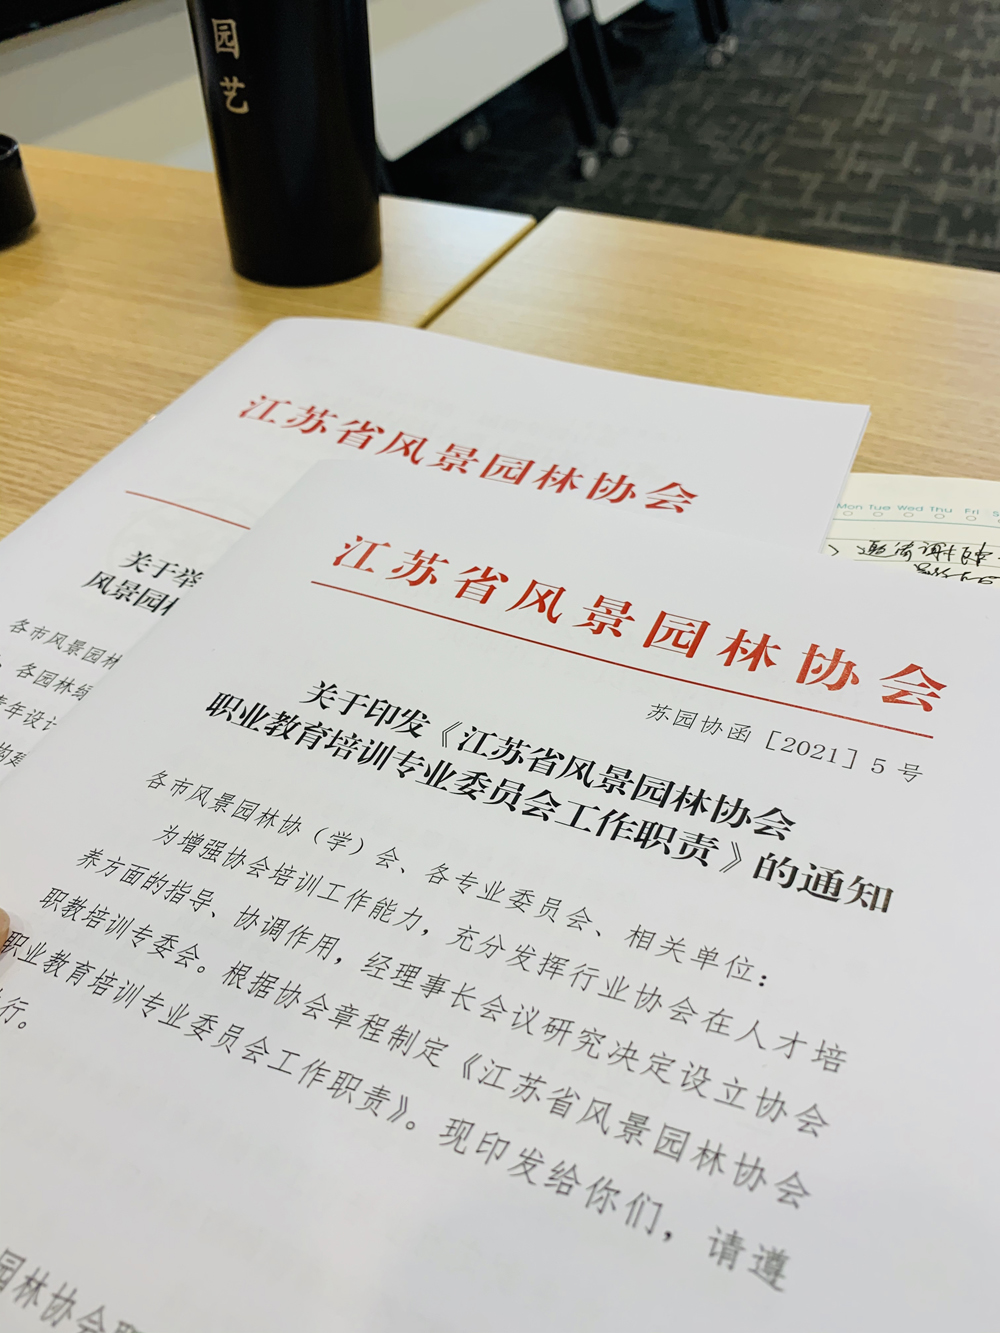 园艺
江苏省风景园林协会
关于举
风景园林
各市风景园林
、各园林绿
青年设计
构建
Mon Tue Wed Thu Fri S
江苏省风景园林协会
苏园协函［2021］5 号
关于印发《江苏省风景园林协会
职业教育培训专业委员会工作职责》的通知
各市风景园林协（学）会、各专业委员会、相关单位：
为增强协会培训工作能力，充分发挥行业协会在人才培
养方面的指导、协调作用，经理事长会议研究决定设立协会
职教培训专委会。根据协会章程制定《江苏省风景园林协会
职业教育培训专业委员会工作职责》。现印发给你们，请遵
行。
园林协会职